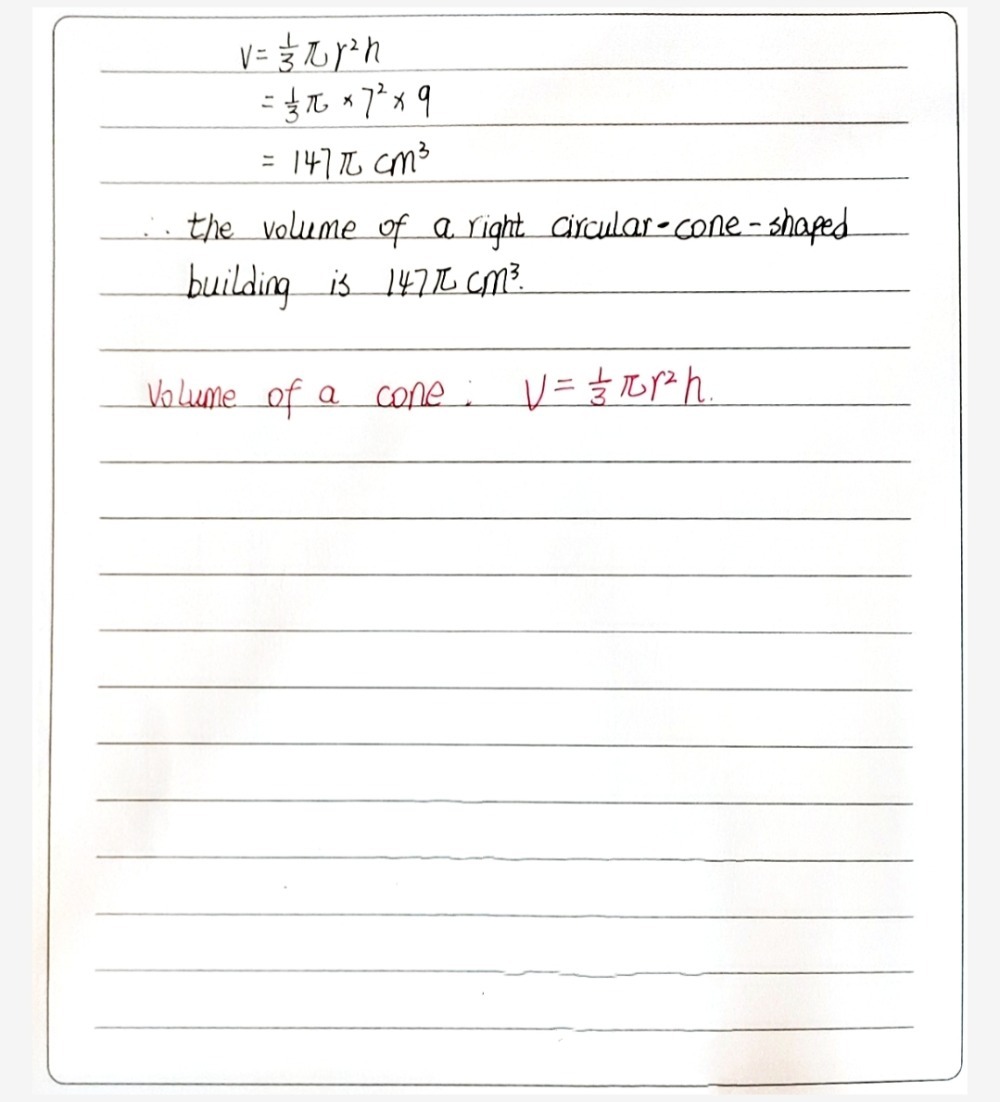 V = 1/3 πr²h
= 1/3 π × 7² × 9
= 147π cm³
∴ the volume of a right circular-cone-shaped
building is 147π cm³.
Volume of a cone : V = 1/3 πr²h.